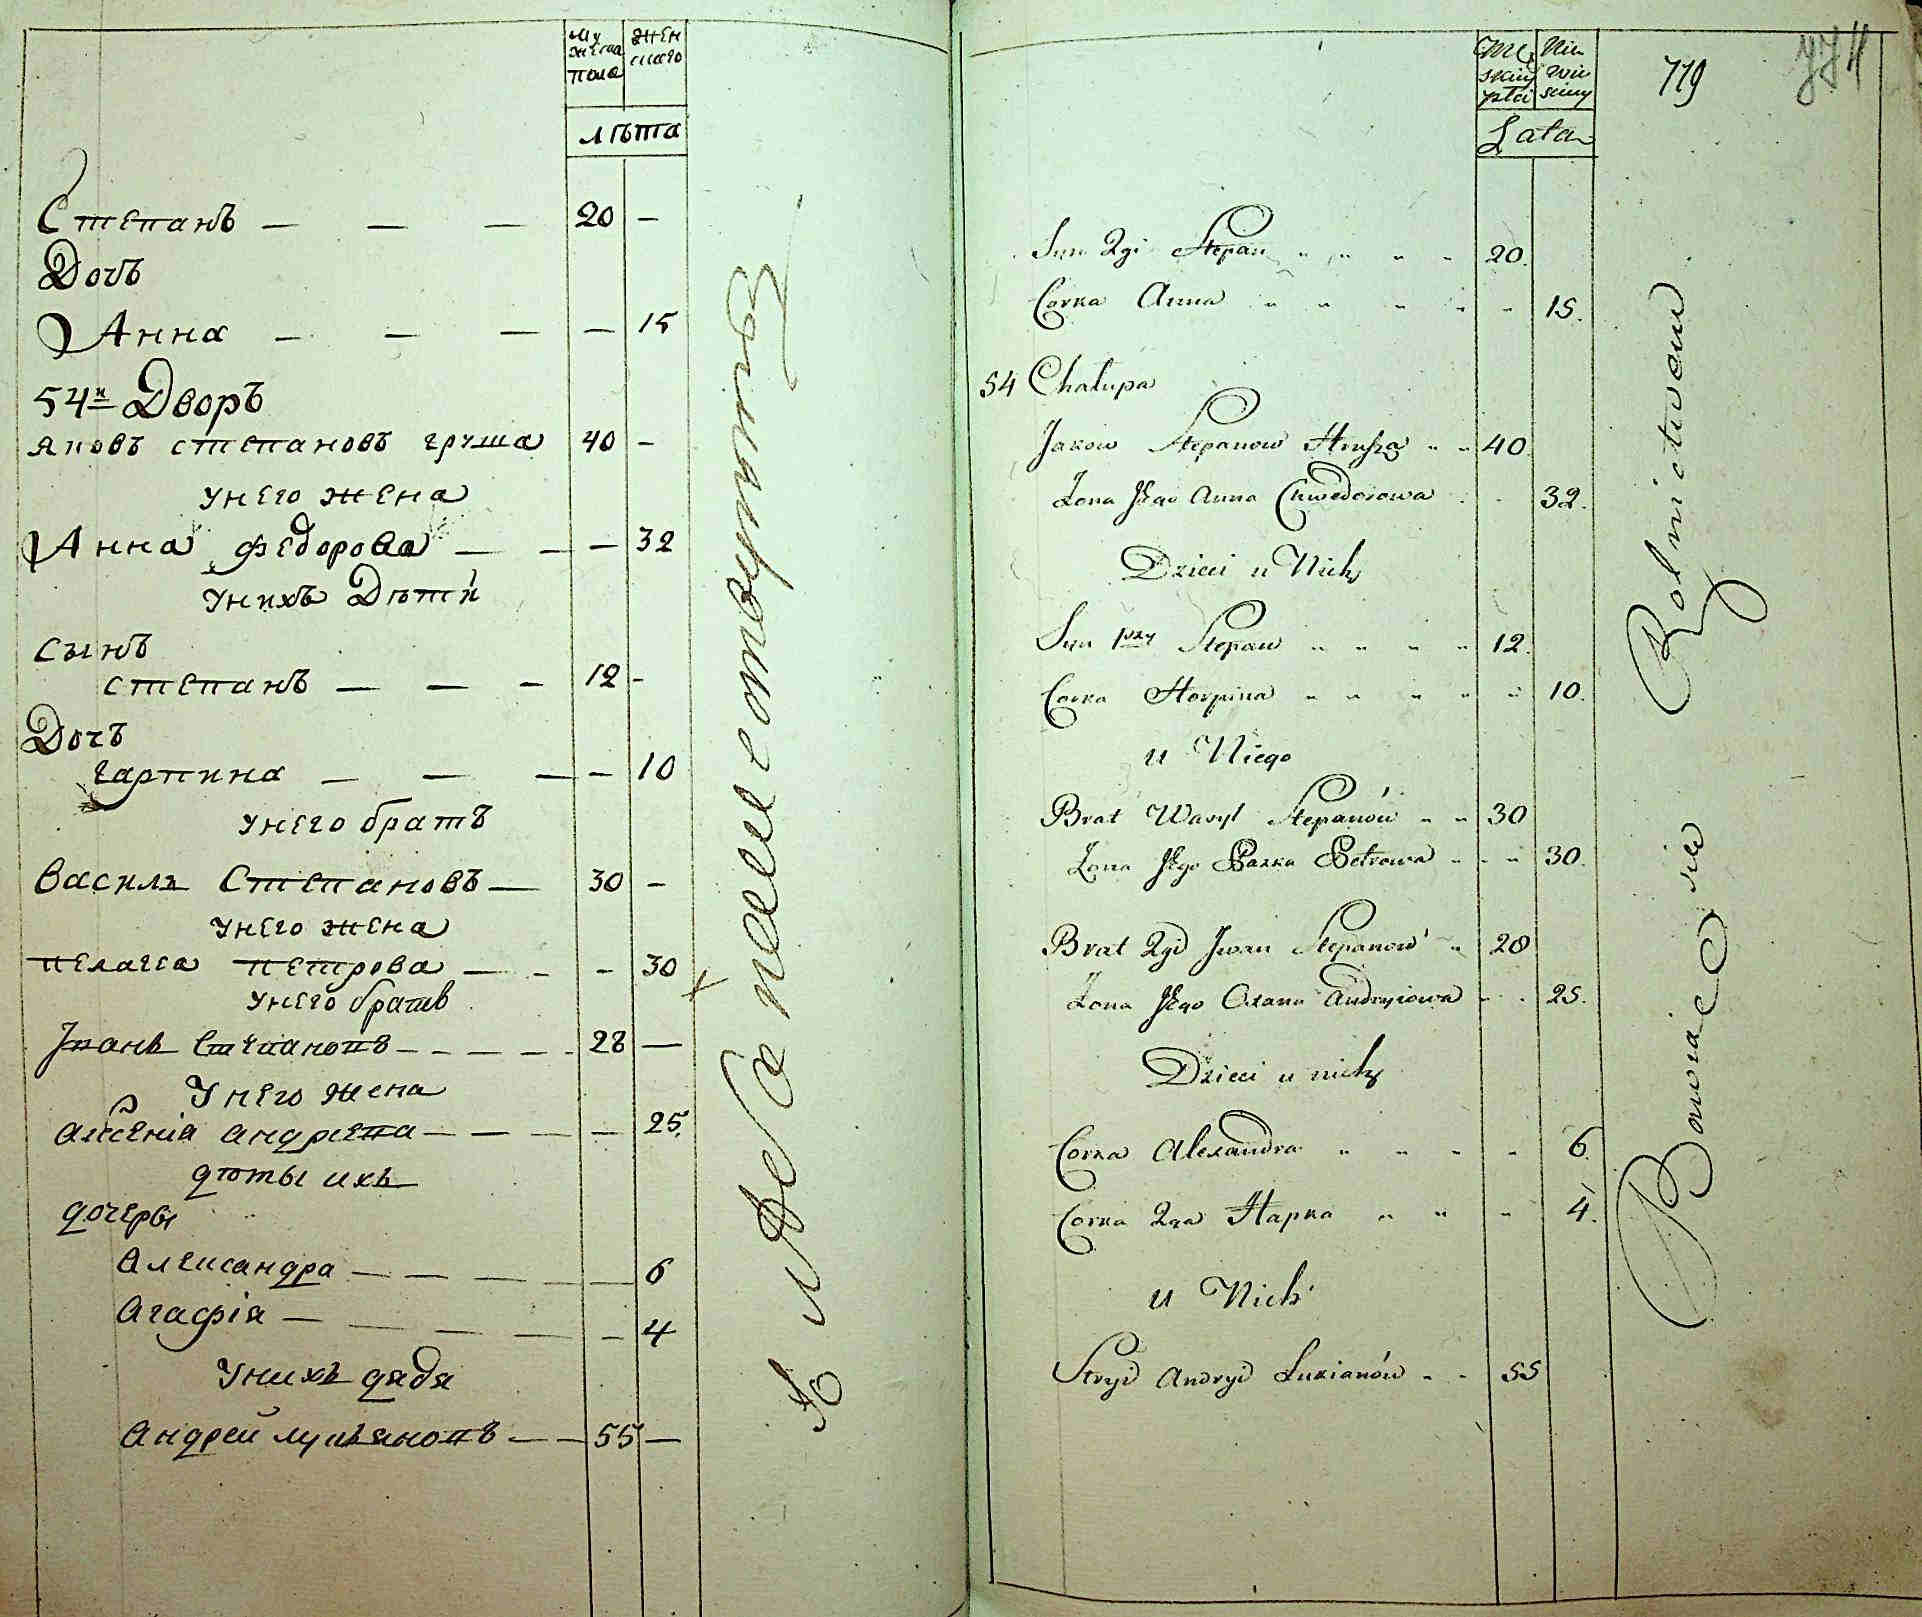 мужеска пола
женскаго
лѣта
Степанъ — — — 20 —
Дочь
Анна — — — — 15
54й Дворъ
Яковъ степановъ груша 40 —
унего жена
Анна федорова — — — 32
унихъ Дѣти
сынъ
степанъ — — — 12 -
Дочь
гарпина — — — — 10
унего братъ
василь Степановъ — 30 —
унего жена
пелагеа петрова — - - 30
унего братъ
Іванъ Степановъ - - - - - 28 —
Унего жена
аѯеніа андреева - - - - 25.
дѣты ихъ
дочеры
Александра - - - - - 6
Агафія - - - - - 4
Унихъ дядя
Андрей лукьяновъ - - 55 —
Męskiey płci
Niewieściey
Lata
119
Syn 2gi Stepan " " " " 20.
Corka Anna " " " " " 15.
54 Chałupa
Jakow Stepanow Hrusza " " 40.
Żona Jego Anna Chwedorowa " " 32.
Dzieci u Nich
Syn 1szy Stepan " " " " 12.
Corka Horpina " " " " " 10.
u Niego
Brat Wasyl Stepanów " " 30
Żona Jego Paxka Petrowa " " " 30.
Brat 2gi Jwan Stepanow " 28
Żona Jego Oxana Andryiowa " " 25.
Dzieci u nich
Corka Alexandra " " " " 6.
Corka 2ga Hapka " " " 4.
u Nich
Stryi Andryi Łukianów " " 55
Bawią się Rolnictwem